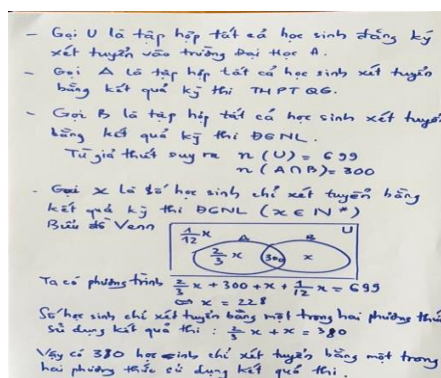 - Gọi U là tập hợp tất cả học sinh đăng ký
xét tuyển vào trường Đại Học A.
- Gọi A là tập hợp tất cả học sinh xét tuyển
bằng kết quả kỳ thi THPT QG.
- Gọi B là tập hợp tất cả học sinh xét tuyển
bằng kết quả kỳ thi ĐGNL.
Từ giả thiết suy ra n(U) = 699
n(A∩B) = 300
- Gọi x là số học sinh chỉ xét tuyển bằng
kết quả kỳ thi ĐGNL (x ∈ N*)
Biểu đồ Venn
U
1/12 x A B
2/3 x 300 x
Ta có phương trình 2/3 x + 300 + x + 1/12 x = 699
⇔ x = 228
Số học sinh chỉ xét tuyển bằng một trong hai phương thức
sử dụng kết quả thi : 2/3 x + x = 380
Vậy có 380 học sinh chỉ xét tuyển bằng một trong
hai phương thức sử dụng kết quả thi.